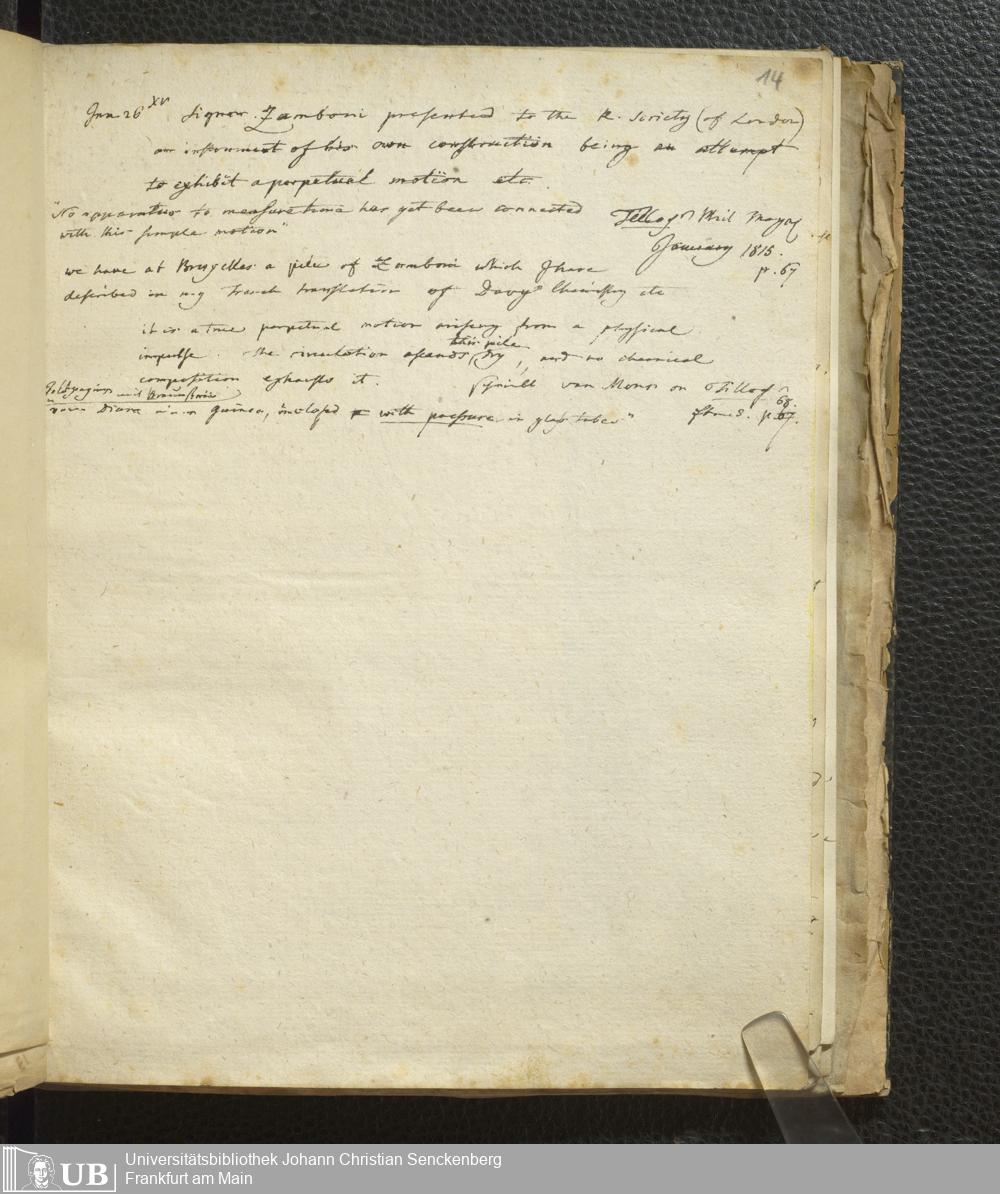 14
Jan 26 XV Signor. Zamboni presented to the R. Society (of London)
an instrument of his own construction being an attempt
to exhibit a perpetual motion etc.
"No apparatus to measure time has yet been connected
with this simple motion"
Tilloch Phil Magaz
January 1815.
p. 67
we have at Bruxelles a pile of Zamboni which I have
described in my French translation of Davys Chemistry etc
it is a true perpetual motion arising from a physical
impulse. the circulation ascends this pile dry, and no chemical
composition exhausts it. schreibt van Mons an Tilloch
Goldpapier und Braunstein
diam a guinea, inclosed with pressure in glass tubes"
68.
p. 67.
Universitätsbibliothek Johann Christian Senckenberg
Frankfurt am Main
UB